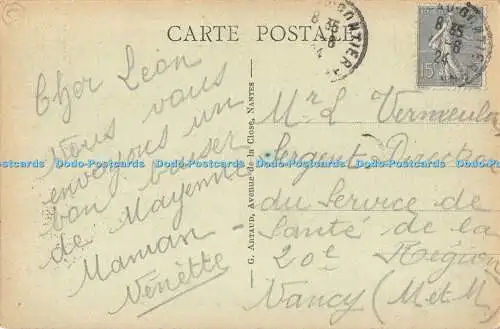 CARTE POSTALE
Cher Léon
Nous vous
envoyons un
bon baiser
de Mayenne
Maman -
Venette
G. ARTAUD, Avenue de la Close, NANTES
Mr L Vermeulen
Sergent Direction
du Service de
Santé de la
20e Région
Nancy (M et M)
8 35
8
24
15
Dodo-Postcards Dodo-Postcards Dodo-Postcards Dodo-Postcards Dodo-Postcards Dodo-Postcards